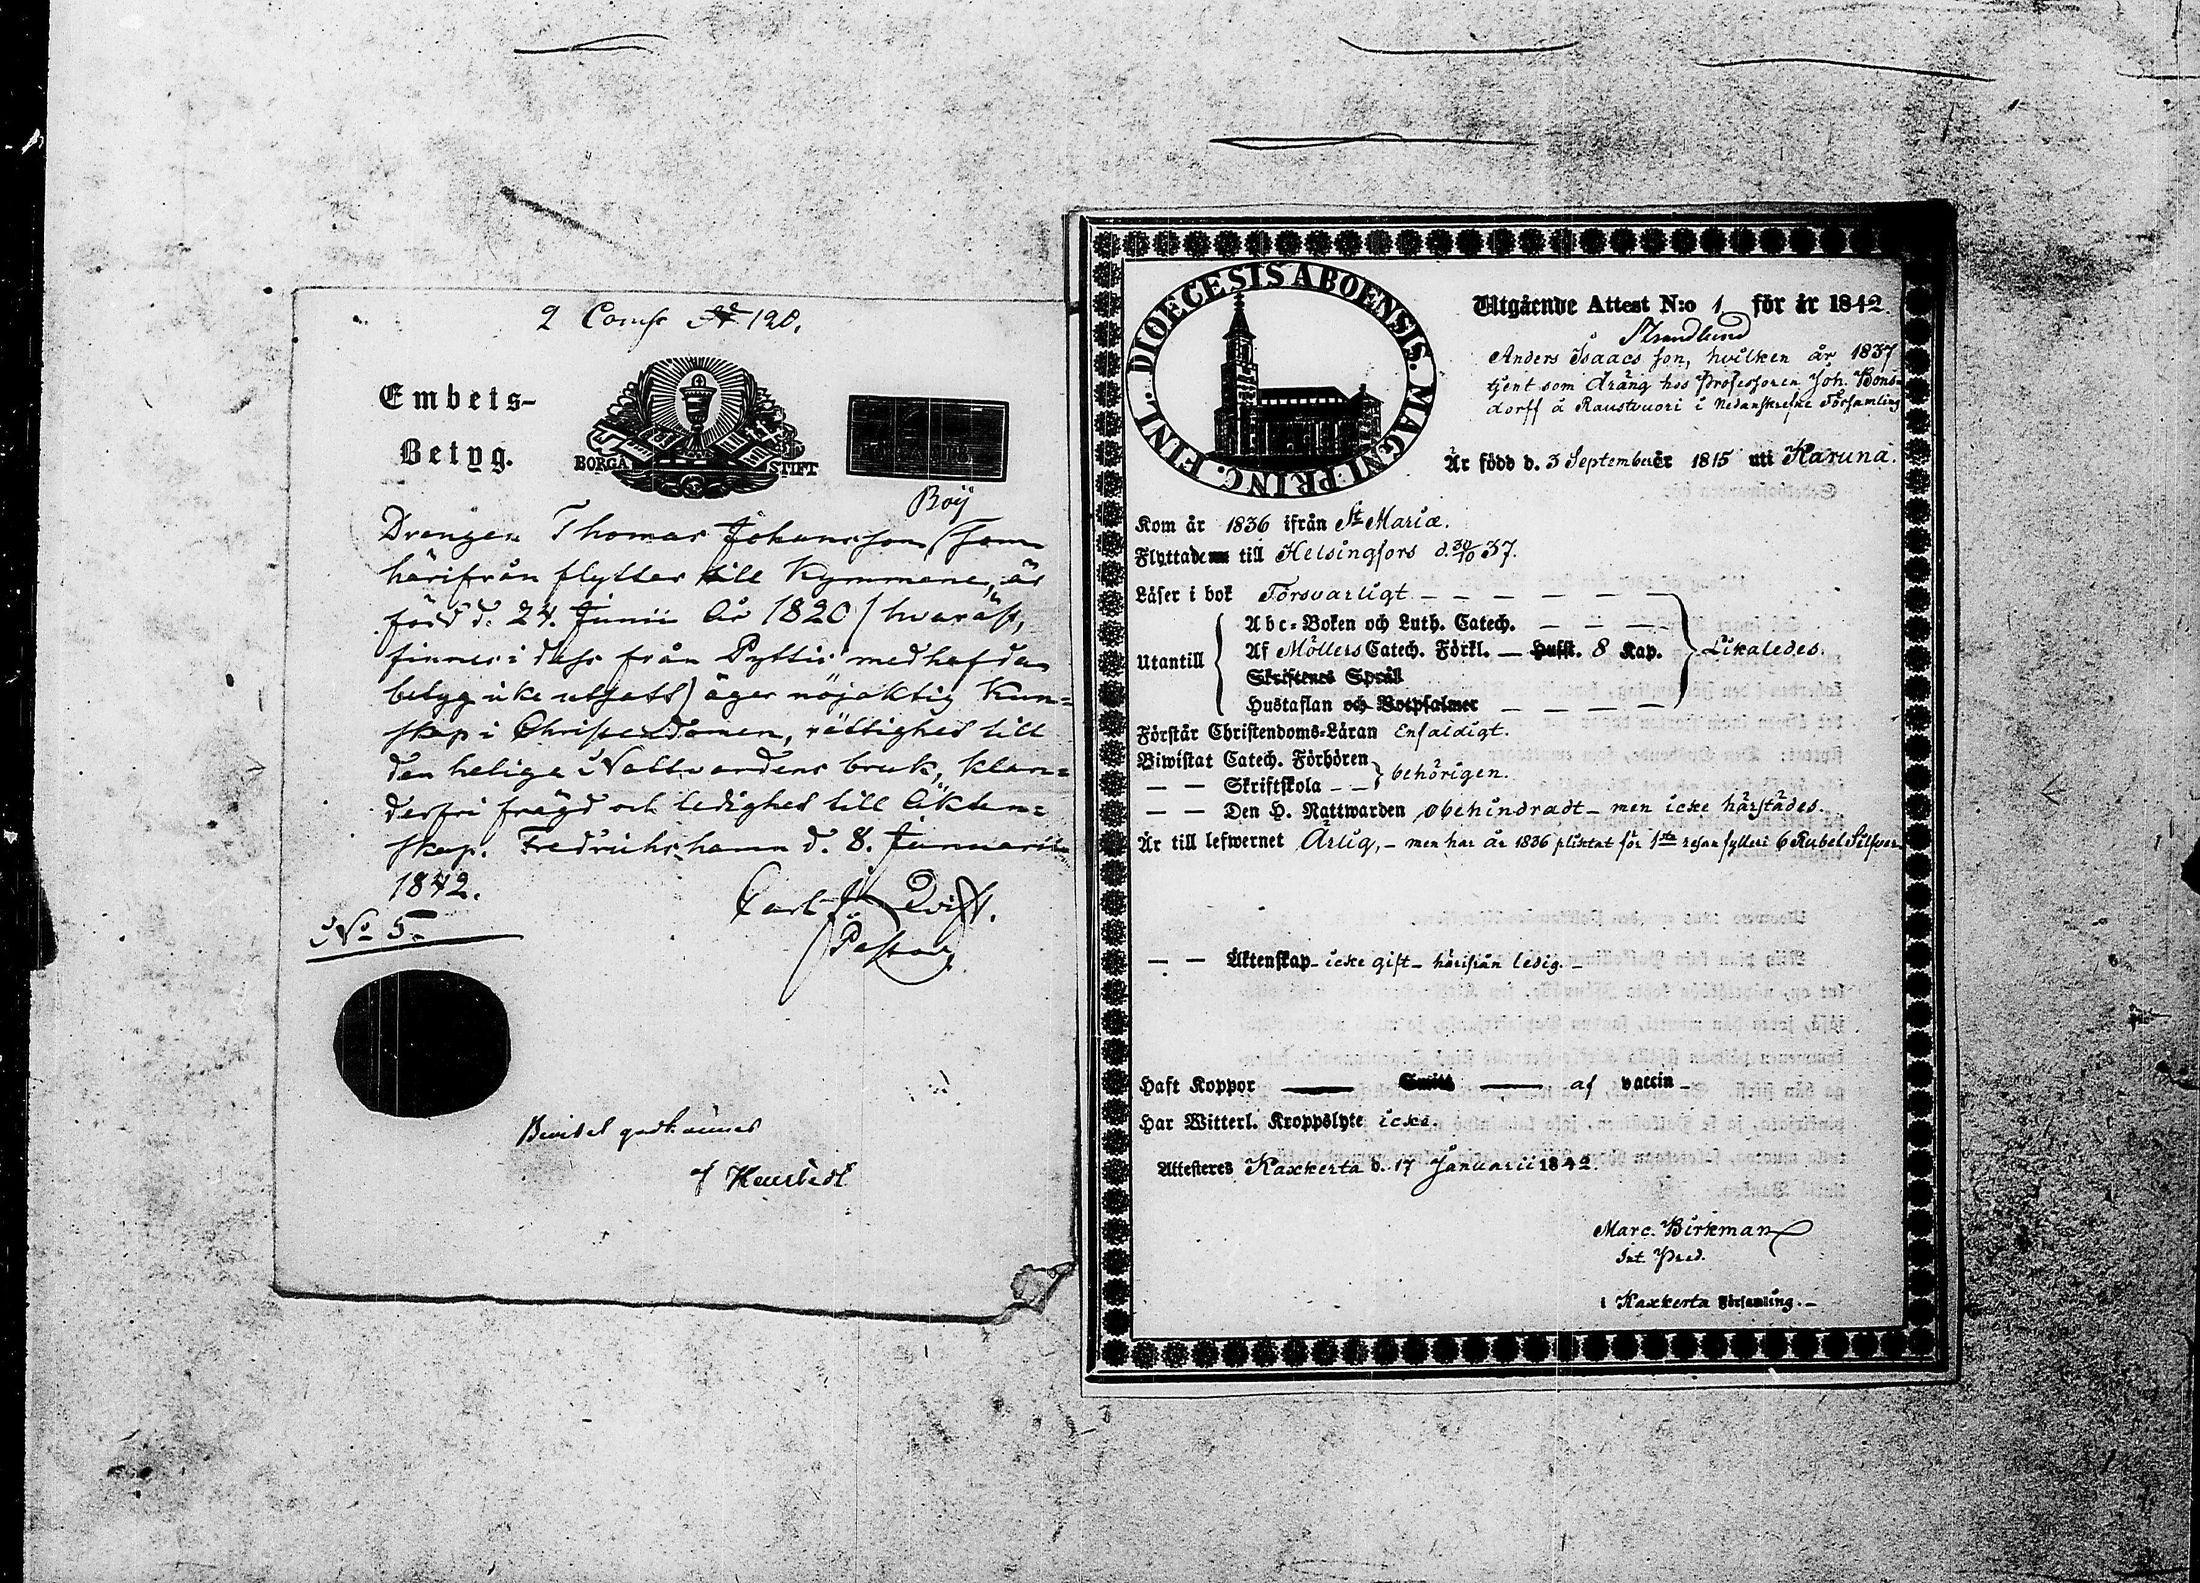 2 Comp № 120.
Embets-
Betyg.
BORGÅ STIFT
Boij
Drengen Thomas Johansson (som
härifrån flyttar till Kymmene, är
född d. 24. Junii år 1820 / hvaräst,
finnes i dess från Pyttis medhafda
betyg icke utsatt) äger nöjaktig Kun-
skap i Christendomen, rättighet till
den heliga Nattvardens bruk, klan-
derfri frägd och ledighet till Äkten-
skap. Fredrichshamn d. 8. Januarii
1842.
Carl Qvist.
Pastor
No 5.
Beviset godkännes
af
DIOECESIS ABOENSIS. MAGNI PRINC. FINL.
Utgående Attest N:o 1 för år 1842.
Strandlund
Anders Isaacs son, hvilken år 1837
tjent som dräng hos Professoren Joh. Bons-
dorff å Raustvuori i Nedanskrefne Församling
Är född d. 3 September 1815 uti Karuna.
Kom år 1836 ifrån St Mariæ.
Flyttade till Helsingfors d. 30/10 37.
Läser i bok Försvarligt
Abc-Boken och Luth. Catech.
Utantill Af Möllers Catech. Förkl. — Husst. 8 Kap. Likaledes.
Skriftenes Språk
Hustaflan och Botpsalmer
Förstår Christendoms-Läran Enfaldigt.
Biwistat Catech. Förhören
— — Skriftskola — — behörigen.
— — Den H. Nattwarden obehindradt — men icke härstädes.
Är till lefwernet Ärlig, — men har år 1836 pliktat för 1sta resan fylleri 6 Rubel Silfver
— — Äktenskap — icke gift — härifrån ledig. —
Haft Koppor — Smitt — af vaccin —
Har Witterl. Kroppslyte icke.
Attesteres Kaxkerta d. 17 Januarii 1842.
Marc. Birkman
Int Pred.
i Kaxkerta Församling. —